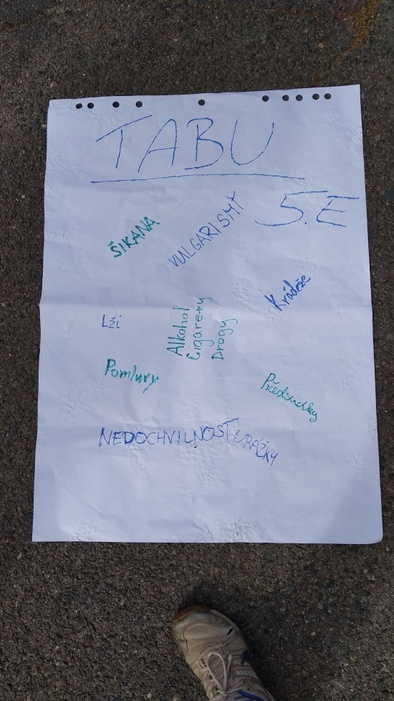 TABU
5.E
ŠIKANA
VULGARISMY
Krádeže
Lži
Alkohol
Cigarety
Drogy
Pomluvy
Předsudky
NEDOCHVILNOST
URÁŽKY